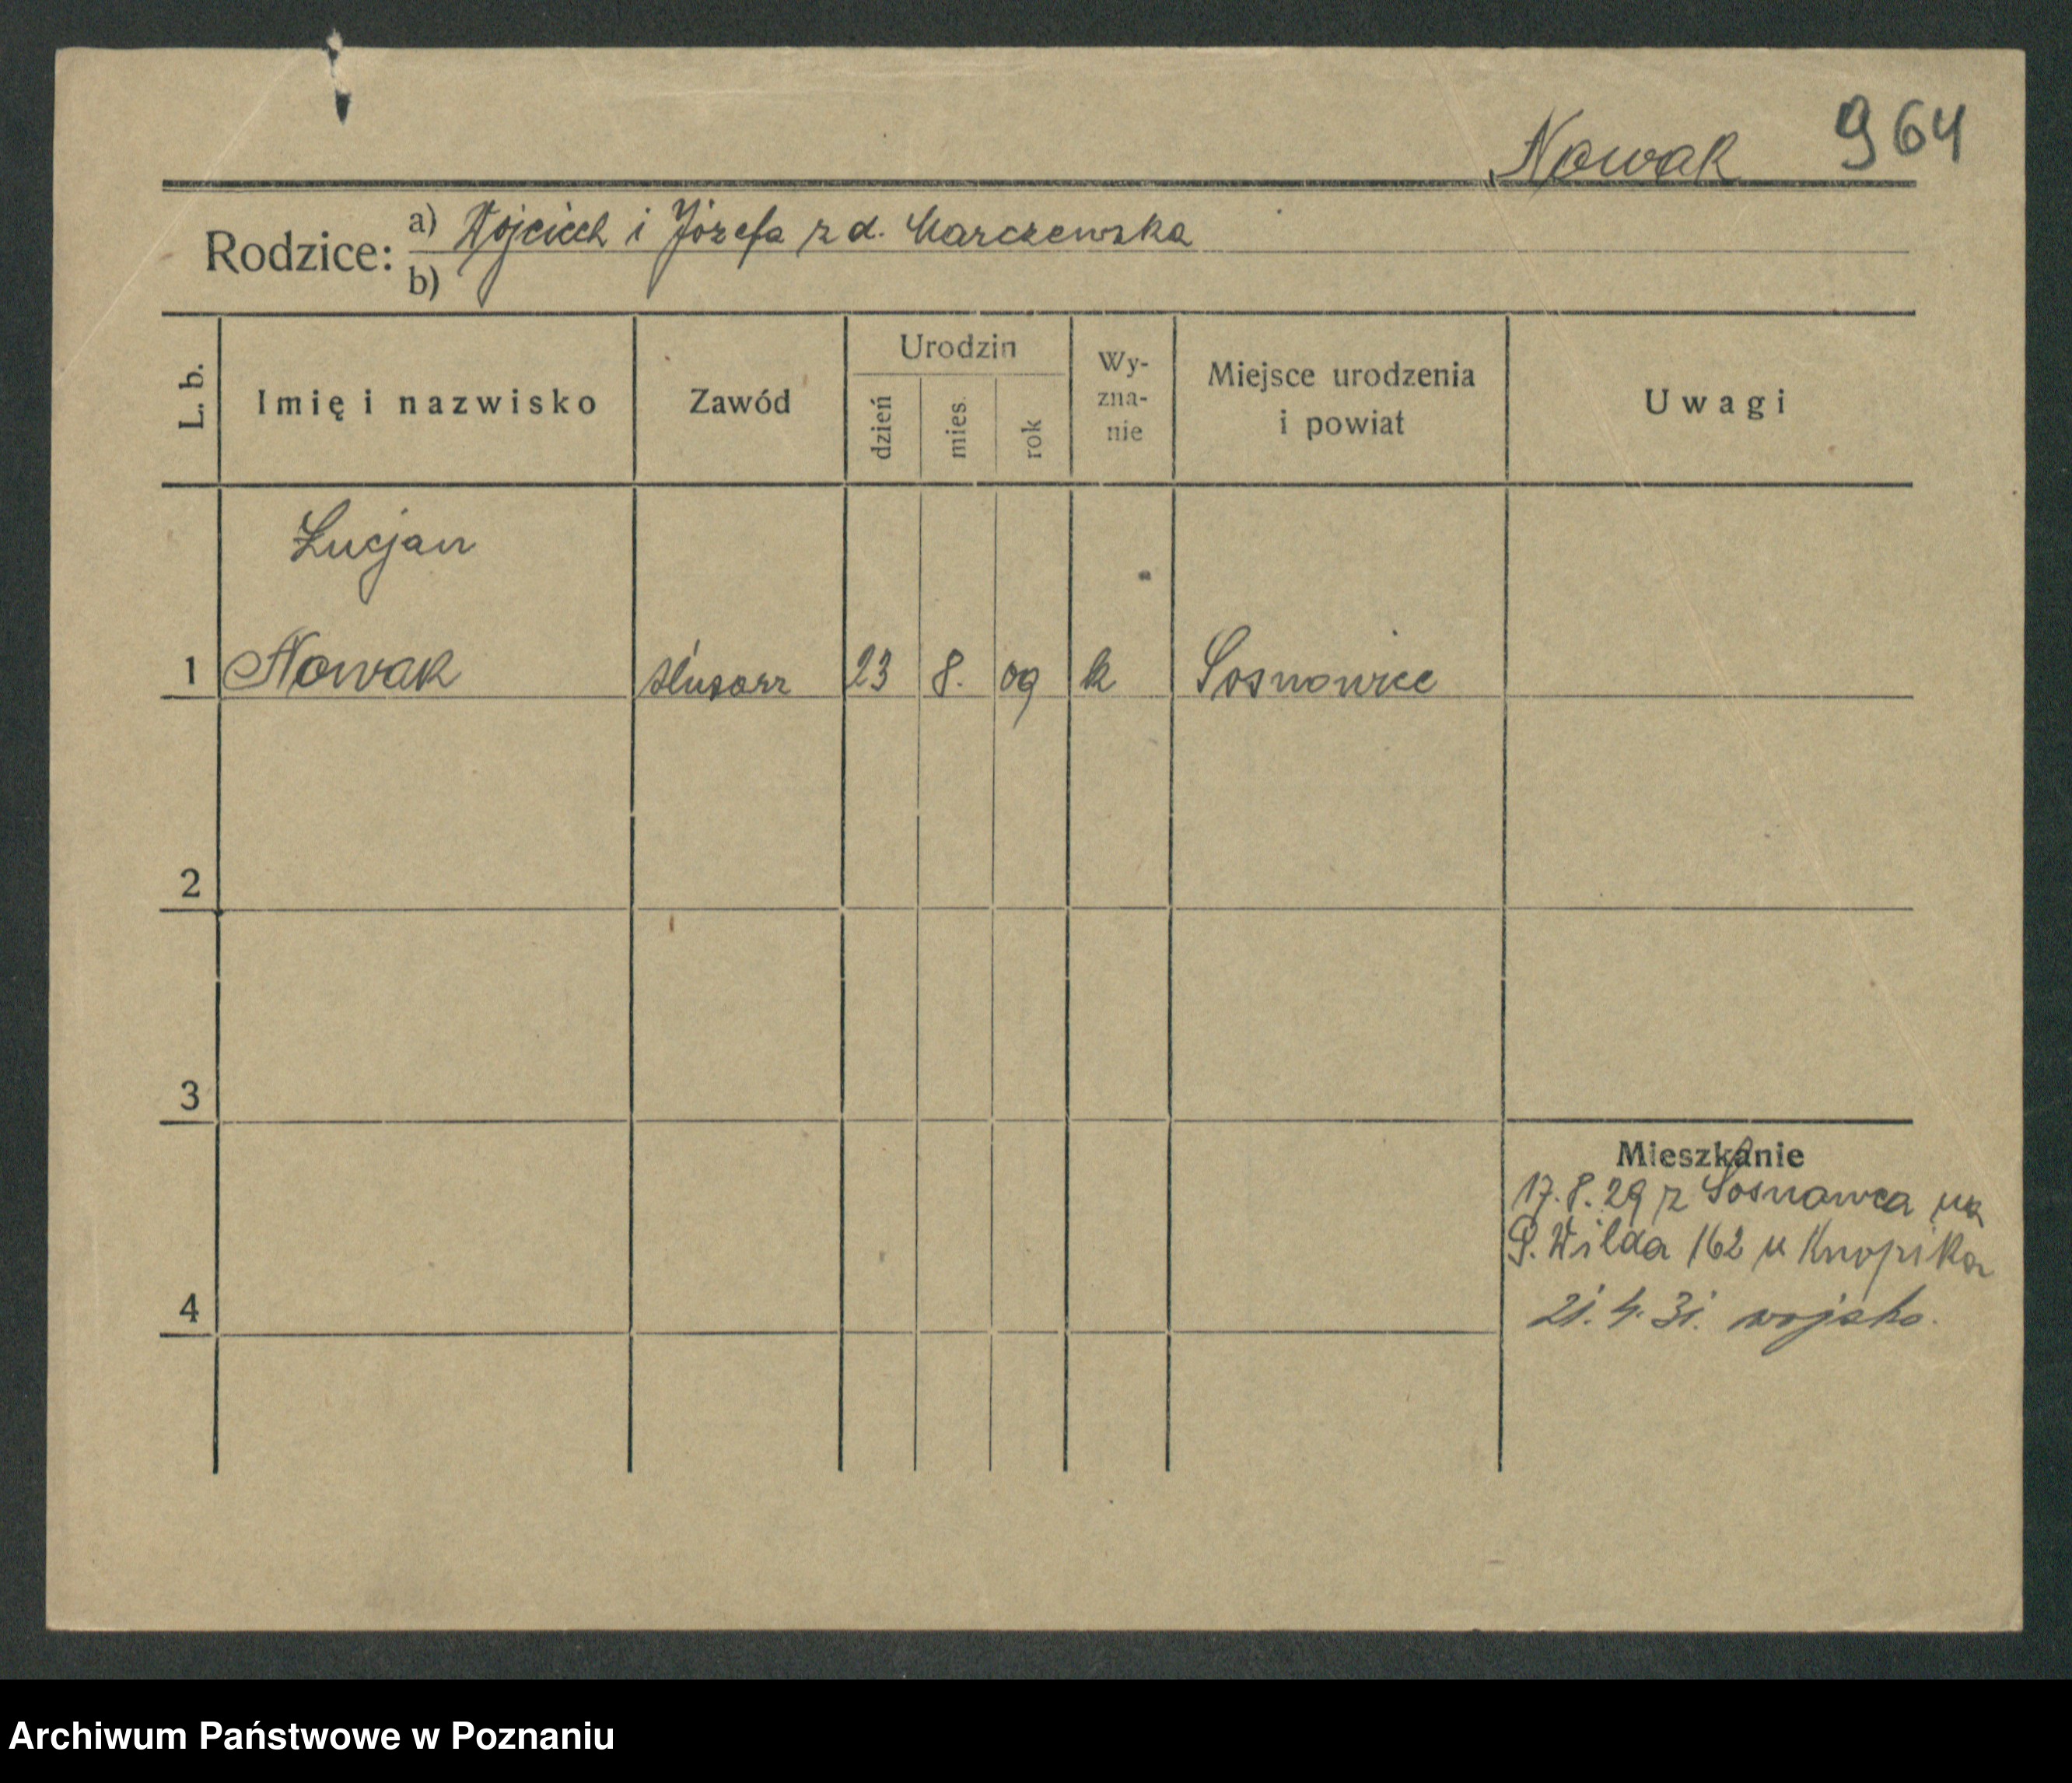 Nowak 964
Rodzice: a) Wojciech i Józefa z d. Marczewska
b)
L. b.
Imię i nazwisko
Zawód
Urodzin
dzień
mies.
rok
Wy-
zna-
nie
Miejsce urodzenia
i powiat
Uwagi
Lucjan
1 Nowak ślusarz 23 8. 09 k Sosnowice
2
3
Mieszkanie
17.8.29 z Sosnowca na
G. Wilda 162 u Knopika
4
21.4.31. wojsko.
Archiwum Państwowe w Poznaniu